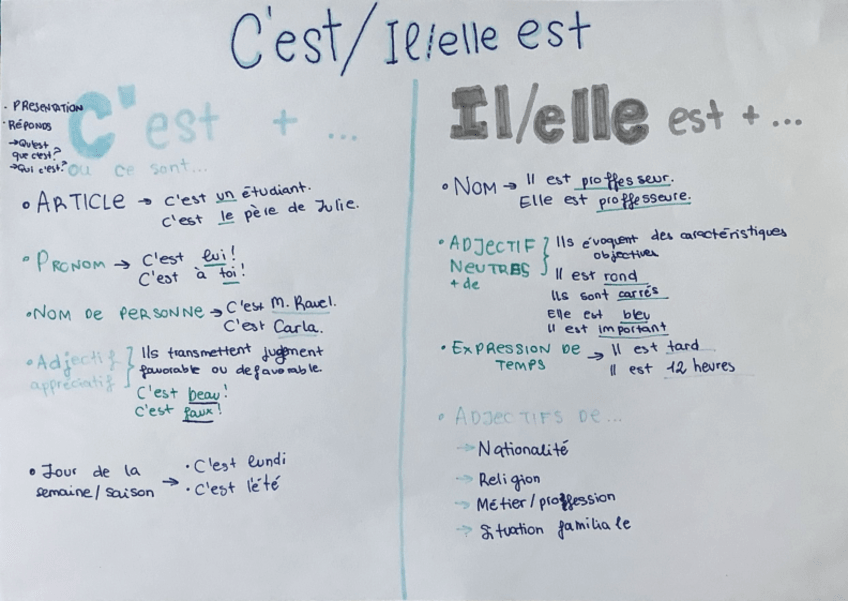 C'est/Il/elle est
• PRESENTATION
• RÉPONDS
→ Qu'est
que c'est?
→ Qui c'est?
C'est + ...
ou ce sont...
• ARTICLE → C'est un étudiant.
C'est le père de Julie.
• PRONOM → C'est lui!
C'est à toi!
• NOM DE PERSONNE → C'est M. Ravel.
C'est Carla.
• Adjectif
appréciatif
Ils transmettent jugment
favorable ou defavorable.
C'est beau!
C'est faux!
• Jour de la
semaine/saison
→ • C'est lundi
• C'est l'été
Il/elle est + ...
• NOM → Il est proffesseur.
Elle est proffesseure.
• ADJECTIF
NEUTRES
+ de
Ils évoquent des caractéristiques
objectives
Il est rond
Ils sont carrés
Elle est bleu
Il est important
• EXPRESSION DE
TEMPS
→ Il est tard
Il est 12 heures
• ADJECTIFS DE...
→ Nationalité
→ Religion
→ Métier/proffession
→ Situation familiale